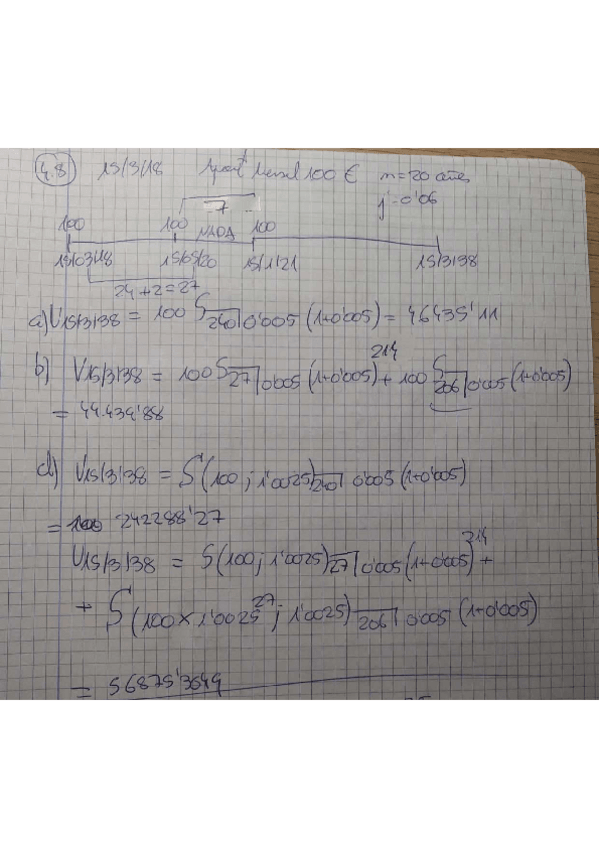 4.8) 15/3/18 Aport Mensual 100 € n=20 años
j=0'06
7
100 100 NADA 100
15/03/18 15/05/20 15/1/21 15/3/38
24+2=27
a) V15/3/38 = 100 S240|0'005 (1+0'005) = 46435'11
b) V15/3/38 = 100 S27|0'005 (1+0'005)^214 + 100 S206|0'005 (1+0'005)
= 44.439'88
d) V15/3/38 = S(100; 1'0025)240|0'005 (1+0'005)
= 242288'27
V15/3/38 = S(100; 1'0025)27|0'005 (1+0'005)^214 +
+ S(100×1'0025^27; 1'0025)206|0'005 (1+0'005)
= 56875'3644